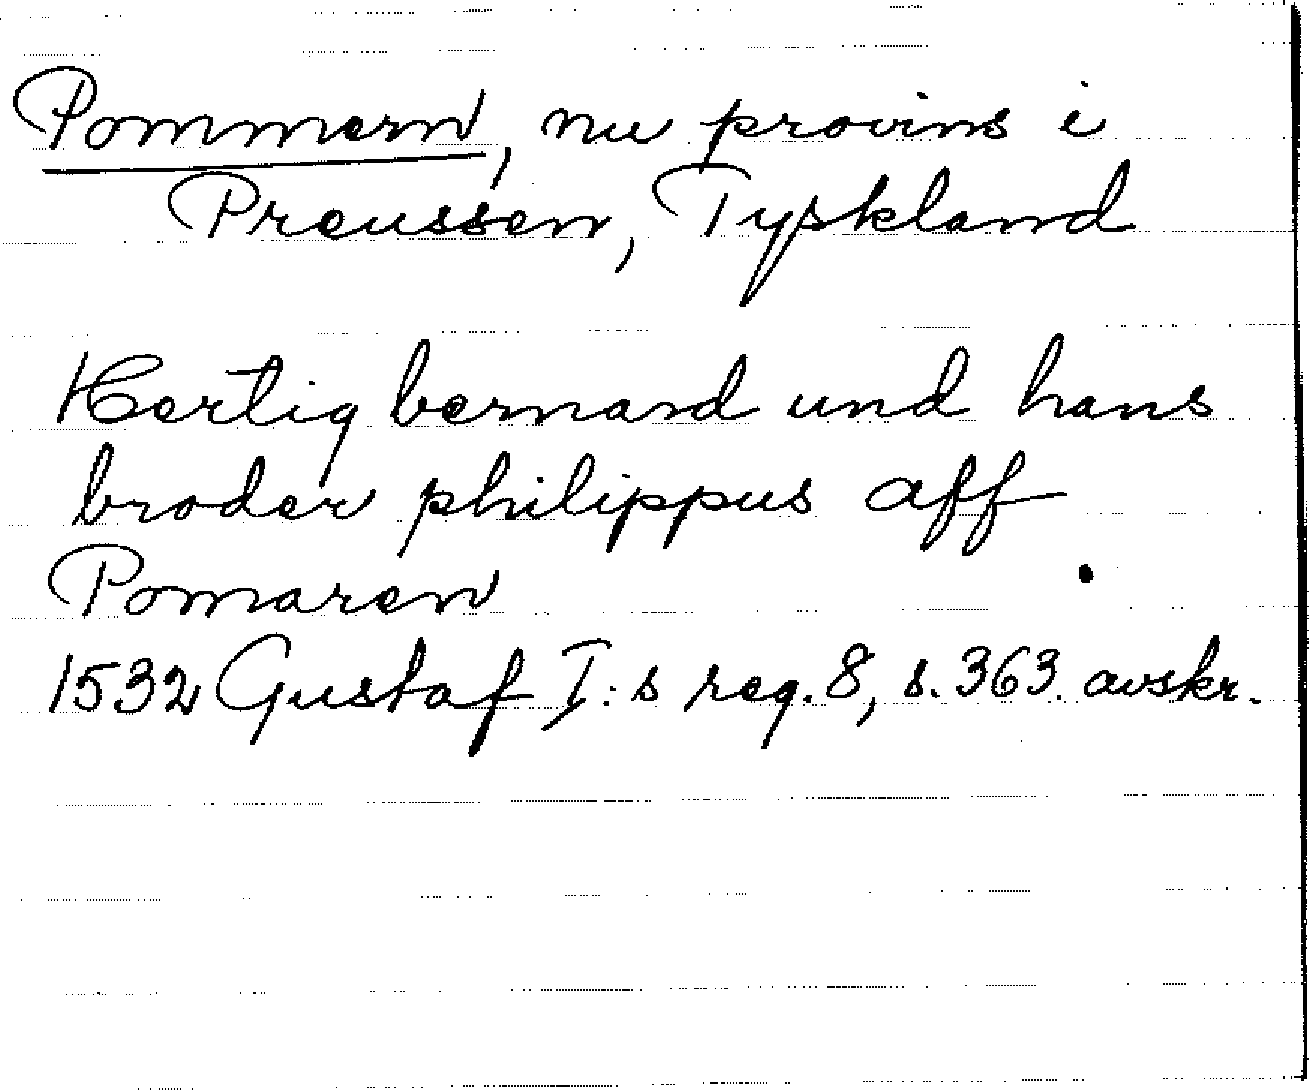 Pommern, nu provins i
Preussen, Tyskland
Hertig bernard und hans
broder philippus aff
Pomaren
1532 Gustaf I:s reg. 8, s. 363. avskr.